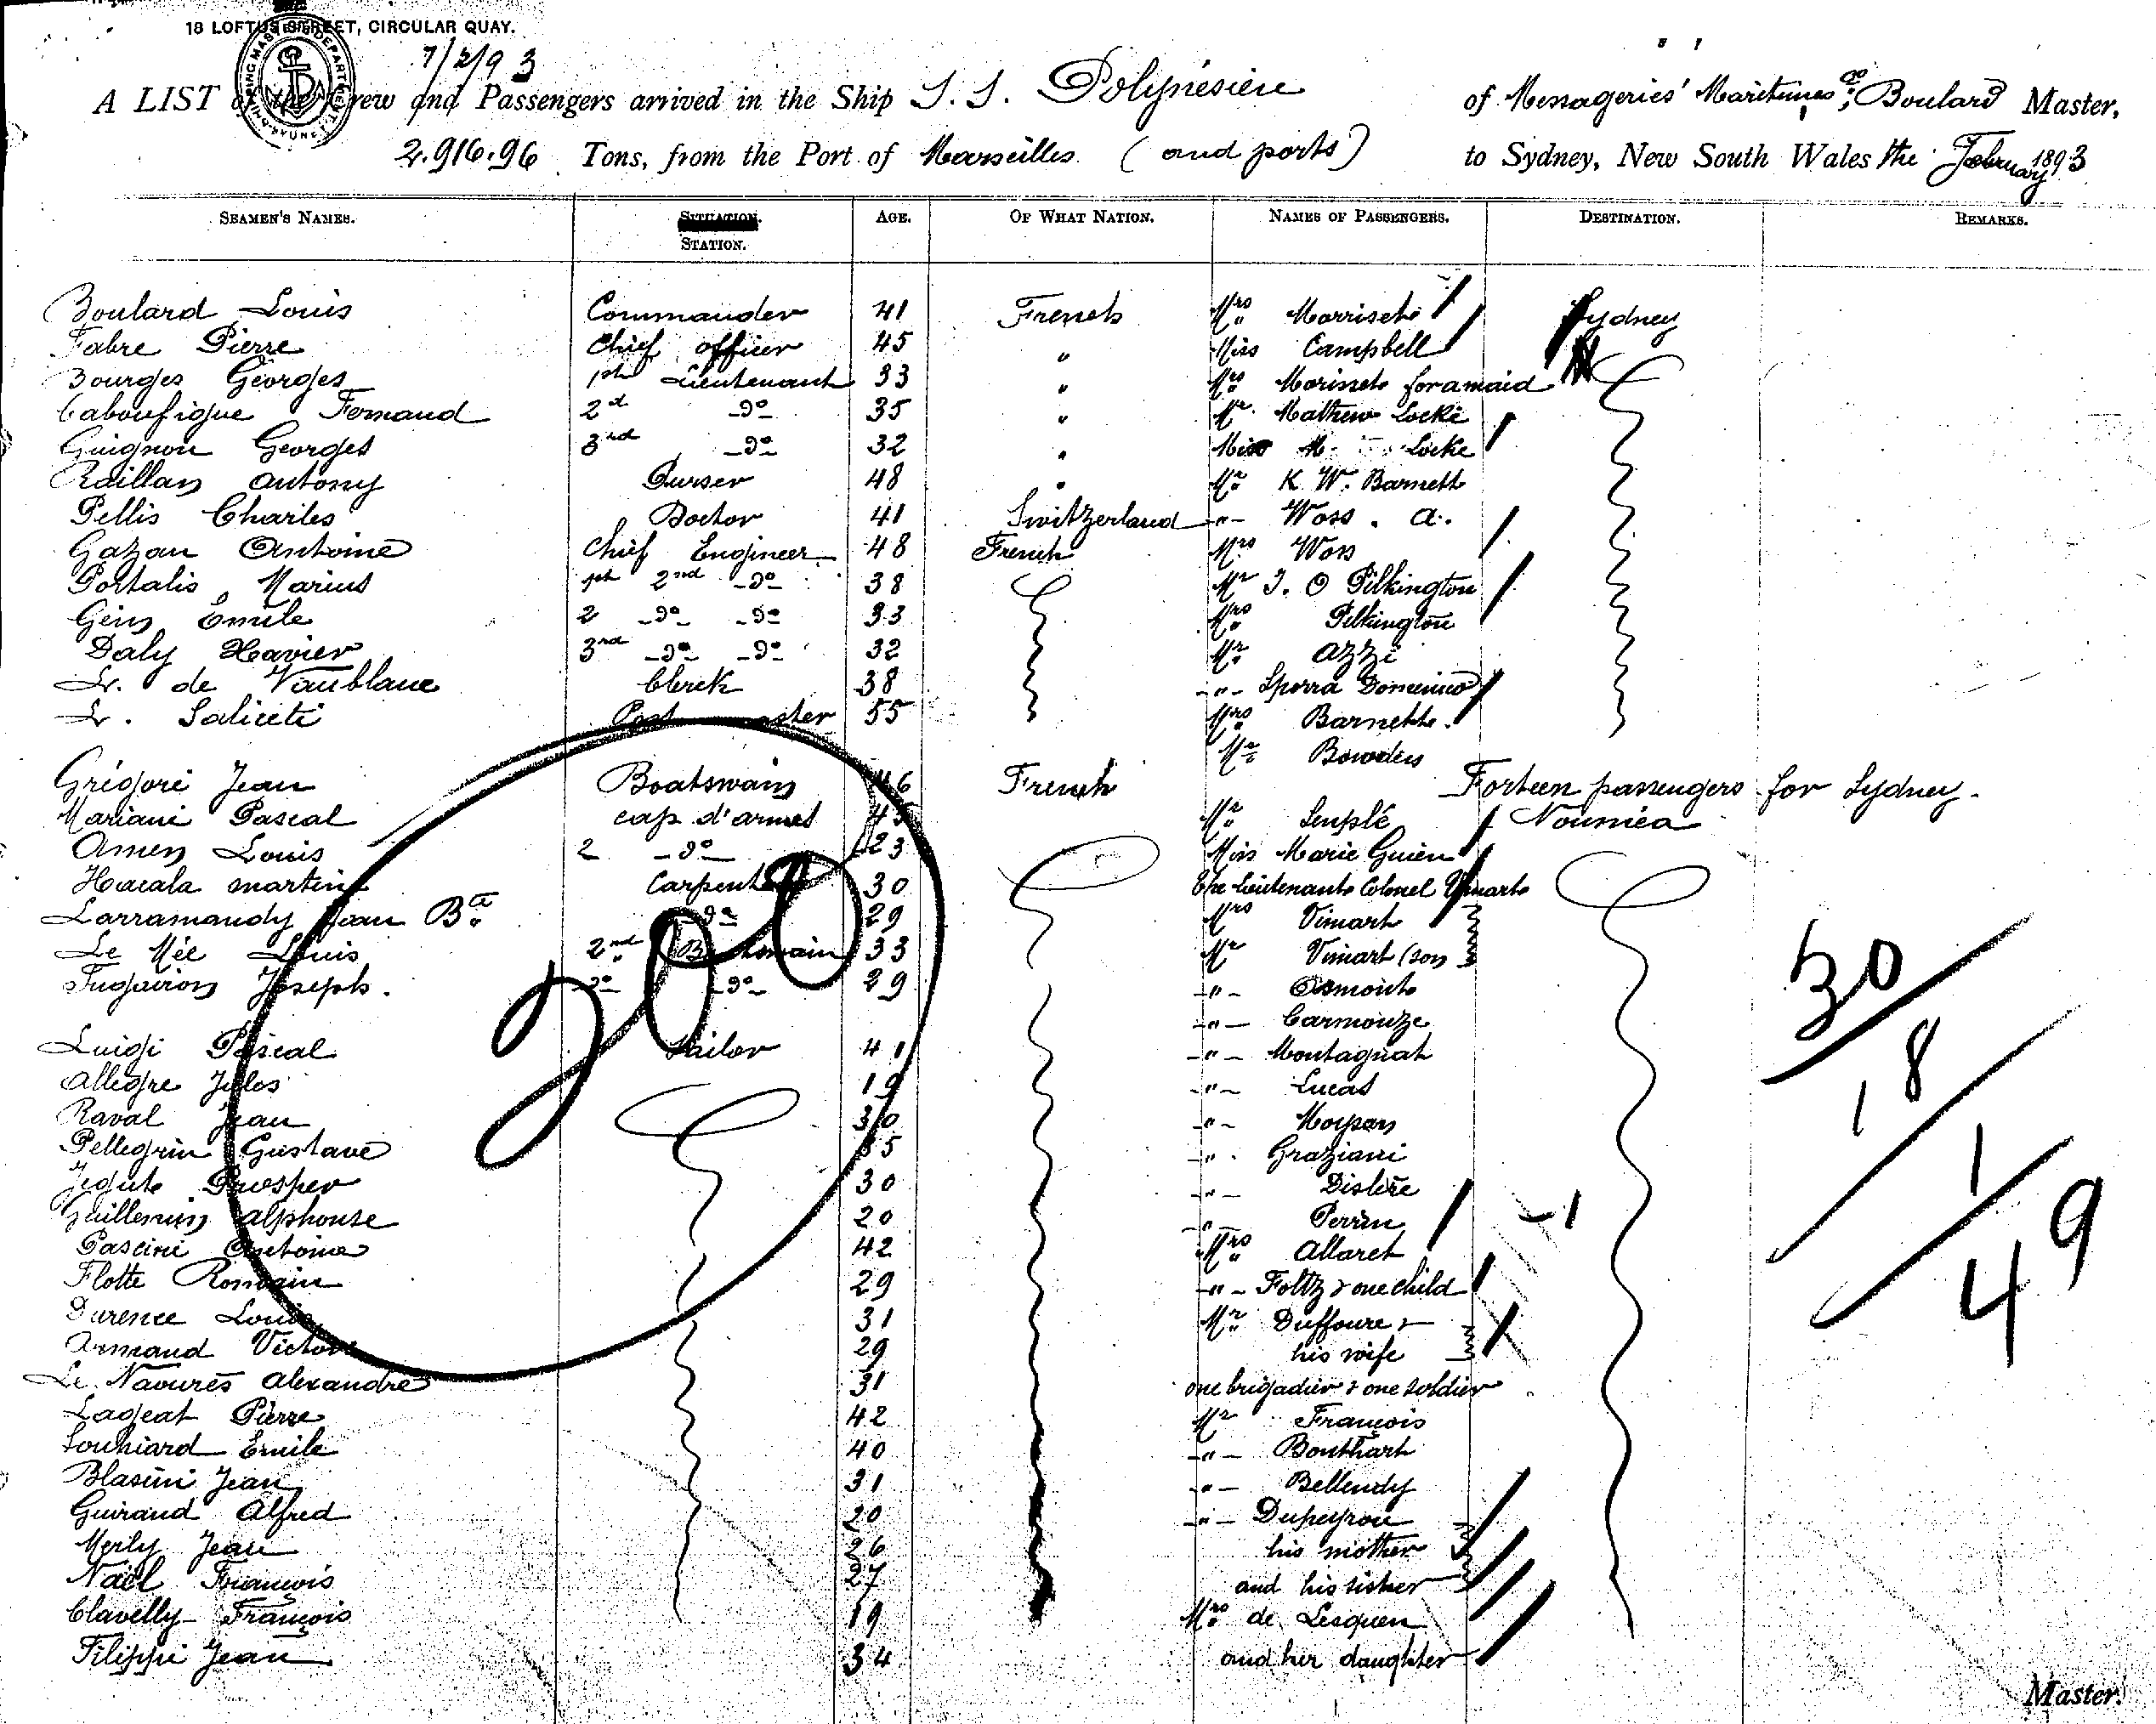 18 LOFTUS STREET, CIRCULAR QUAY.
7/2/93
A LIST of the Crew and Passengers arrived in the Ship S. S. Polynésien of Messageries Maritimes Co; Boulard Master,
2.916.96 Tons, from the Port of Marseilles (and ports) to Sydney, New South Wales the February 1893
SEAMEN'S NAMES. SITUATION. STATION. AGE. OF WHAT NATION. NAMES OF PASSENGERS. DESTINATION. REMARKS.
Boulard Louis Commander 41 French Mrs Morriset Sydney
Fabre Pierre Chief officer 45 " Miss Campbell
Bourges Georges 1st Lieutenant 33 " Mrs Morisset for a maid
Caboufigue Fernand 2d do 35 " Mr Mathew Locke
Guignon Georges 3rd do 32 " Miss M. Locke
Raillan Antony Purser 48 " Mr K. W. Barnett
Pellis Charles Doctor 41 Switzerland -"- Woss. A.
Gazan Antoine Chief Engineer 48 French Mrs Woss
Portalis Marius 1st 2nd do 38 Mr J. O Pilkington
Gein Emile 2 do do 33 Mrs Pilkington
Daly Xavier 3rd do do 32 Mr Azzi
Lr. de Vaublanc Clerk 38 -"- Sporra Domenico
Lr. Saliceti Post master 55 Mrs Barnett.
Mr Bowden
Grégori Jean Boatswain 46 French Forteen passengers for Sydney.
Mariani Pascal cap. d'armes 45 Mr Seuplé Nouméa
Amen Louis 2 do 23 Miss Marie Guien
Hacala Martin Carpenter 30 the Lieutenant Colonel Vimart
Larramaudy Jean Bte do 29 Mrs Vimart
Le Mée Louis 2nd Boatswain 33 Mr Vimart (son
Fugairon Joseph. do do 29 -"- Osmont
-"- Carmouze
Luigi Pascal Sailor 41 -"- Montagnat
Allegre Jules 19 -"- Lucas
Raval Jean 30 -"- Morpan
Pellegrin Gustave 35 -"- Graziani
Jedute Prosper 30 -"- Dislère
Guillemin Alphonse 20 -"- Perrin
Pascini Antoine 42 Mrs Allaret
Flotte Romain 29 -"- Foltz & one child
Durence Louis 31 Mr Duffoure &
Armand Victor 29 his wife
Le Naourès Alexandre 31 one brigadier & one soldier
Lageat Pierre 42 Mr François
Souhiard Emile 40 -"- Bonthart
Blasini Jean 31 -"- Bellendy
Guirand Alfred 20 -"- Dupeyrou
Merly Jean 26 his mother
Naël François 27 and his sister
Clavelly François 19 Mrs de Lesquen
Filippi Jean 34 and her daughter
200
30
18
1
49
-1
Master.